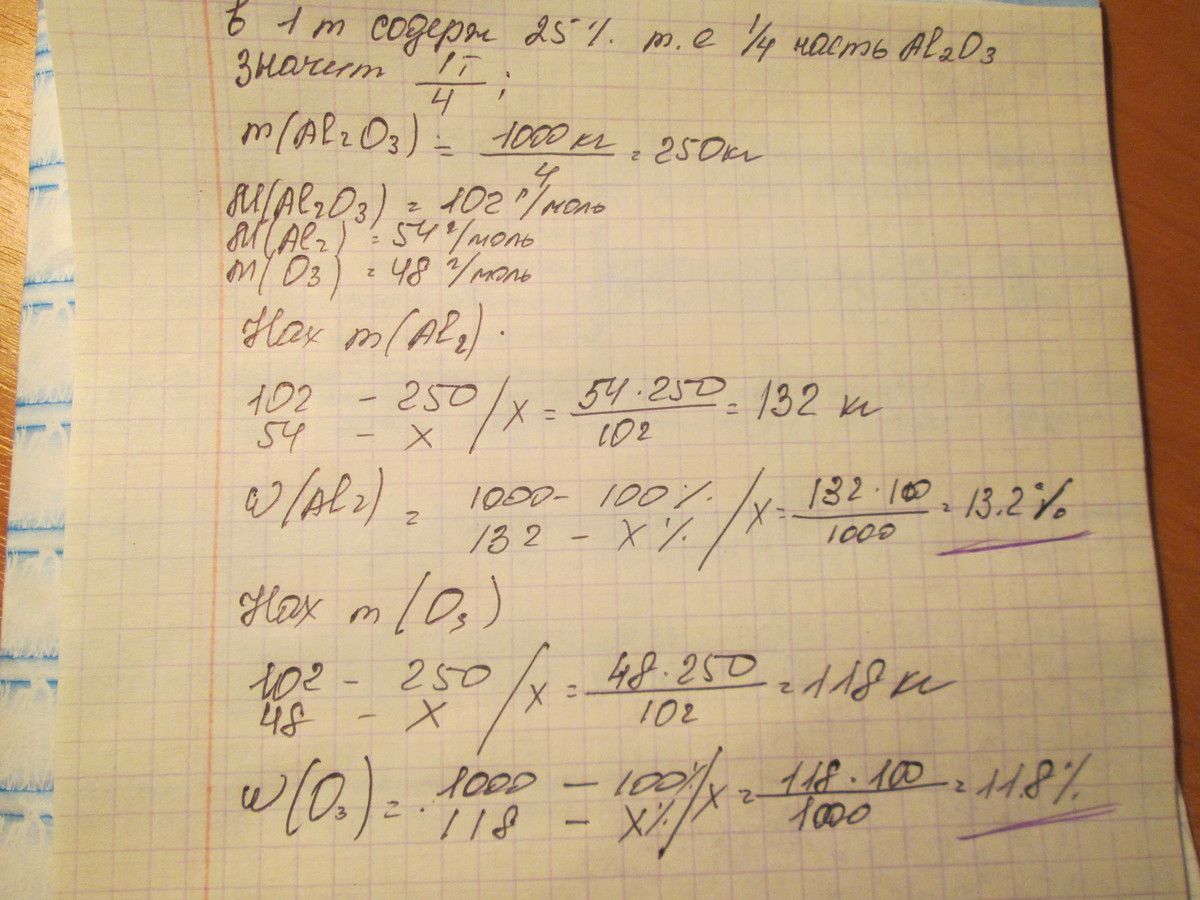 в 1 т содерж 25%. т.е 1/4 часть Al₂O₃
Значит 1т/4;
m(Al₂O₃) = 1000 кг/4 = 250кг
M(Al₂O₃) = 102 г/моль
M(Al₂) = 54 г/моль
m(O₃) = 48 г/моль
Нах m(Al₂).
102 - 250 / x = 54·250/102 = 132 кг
54 - x
ω(Al₂) = 1000 - 100% / x = 132·100/1000 = 13.2%
132 - x%
Нах m(O₃)
102 - 250 / x = 48·250/102 = 118 кг
48 - x
ω(O₃) = 1000 - 100% / x = 118·100/1000 = 11.8%
118 - x%